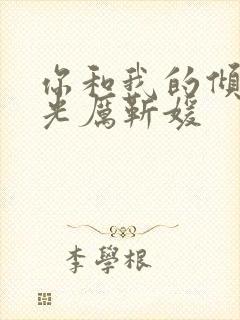 你和我的傾
光厲靳媛
李學根